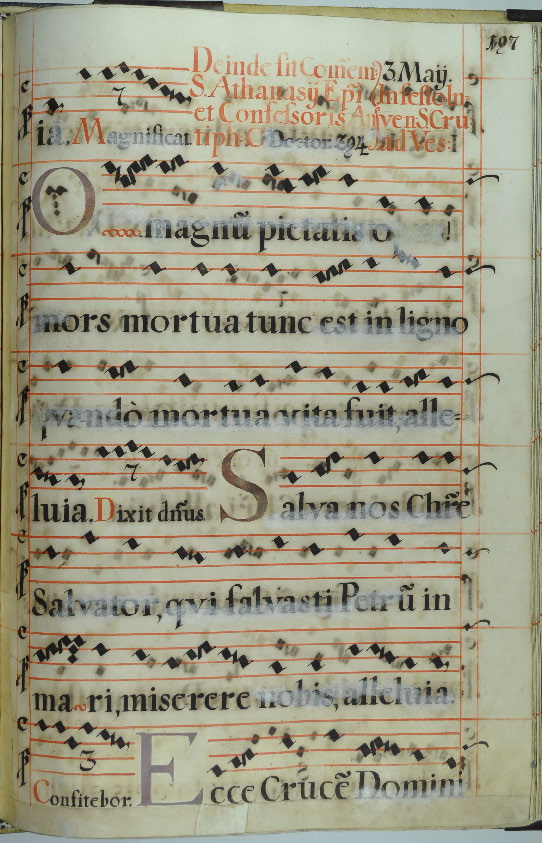 197
Deinde fit Com̃em̃) 3. Maij.
S. Athanasij Epi
et Confessoris
in Inven S Cru
ia. Magnificat. Doctor. 394 Ad Ves. I
O magnũ pietatis o
mors mortua tunc est in ligno
qvando mortua vita fuit, alle-
luia. Dixit dñus. Salva nos Chr̃e
Salvator, qvi salvasti Petrũ in
ma~ri, miserere nobis, alleluia.
Confitebor. Ecce Crucẽ Domini